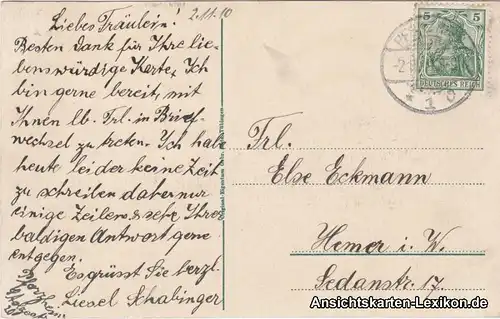 Liebes Fräulein!
2.11.10
Besten Dank für Ihre lie-
benswürdige Karte. Ich
bin gerne bereit, mit
Ihnen lb. Frl. in Brief-
wechsel zu treten. Ich habe
heute leider keine Zeit
zu schreiben daher nur
einige Zeilen u. sehe Ihrer
baldigen Antwort gerne
entgegen.
Es grüsst Sie herzl.
Liesel Schabinger
Pforzheim
5
5
DEUTSCHES REICH
Frl.
Else Eckmann
Hemer i. W.
Sedanstr. 17.
Ansichtskarten-Lexikon.de